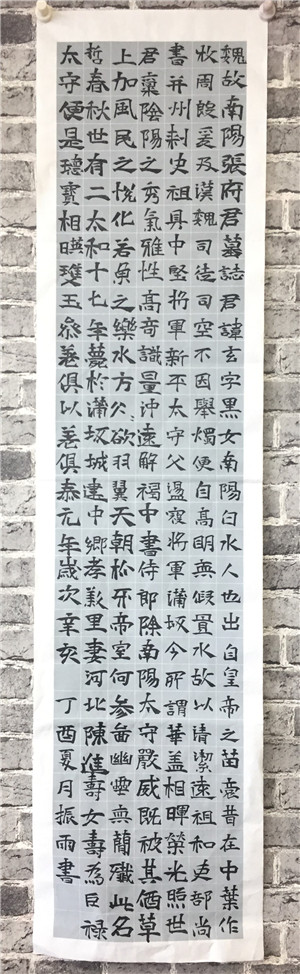 魏故南陽張府君墓誌君諱玄字黑女南陽白水人也出自皇帝之苗裔昔在中葉作
牧周殷爰及漢魏司徒司空不因舉燭便自高明無假置水故以清潔遠祖和吏部尚
書并州刾史祖具中堅将軍新平太守父盪寇將軍蒲坂令所謂華盖相暉榮光照世
君稟陰陽之秀氣雅性髙奇識量沖遠解褐中書侍郎除南陽太守嚴威既被其猶草
上加風民之悅化若魚之樂水方公欲羽翼天朝松牙帝室何参啚幽靈無蘭殲此名
哲春秋世有二太和十七年薨於蒲坂城建中鄉孝里妻河北陳進壽女壽為巨祿
太守便是寶相暎瓊玉叅差俱以善俱泰元年歲次辛亥 丁酉夏月振雨書